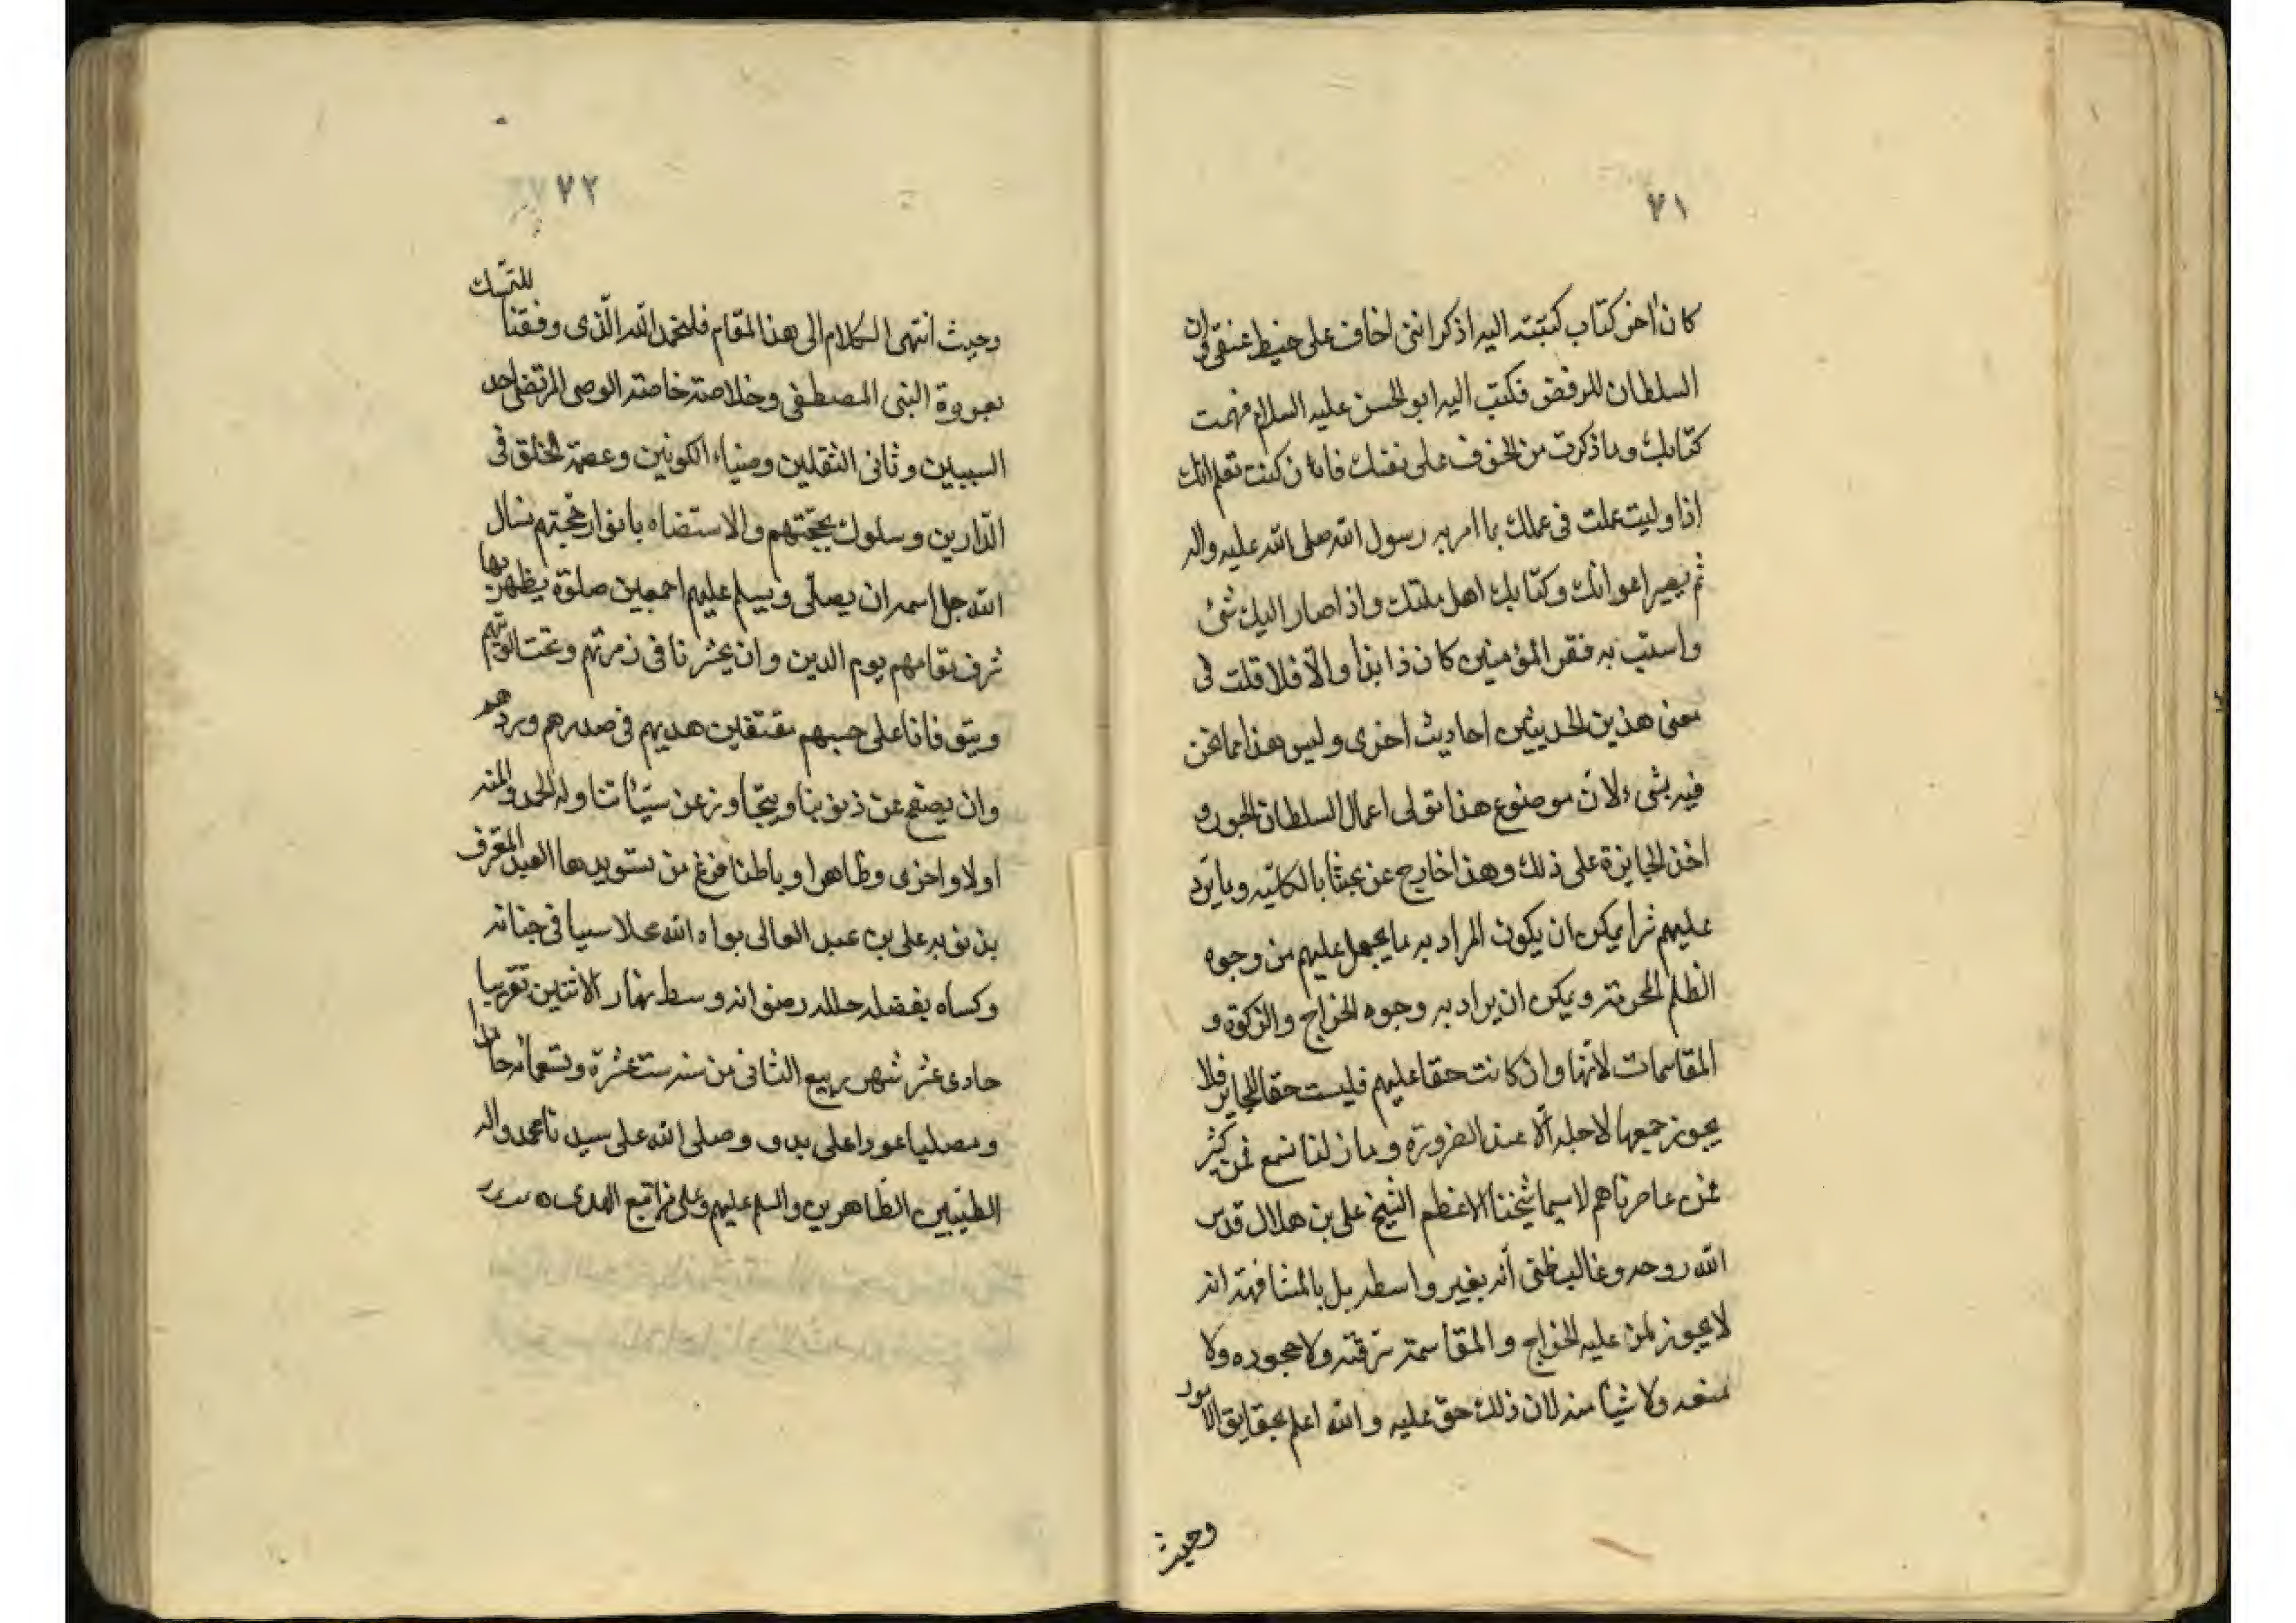 ٧١
كان اخر كتاب كتبته اليه اذكر انني اخاف على خيط عنقي وان
السلطان للرفض فكتب اليه ابو الحسن عليه السلام فهمت
كتابك وما ذكرت من الخوف على نفسك فان كنت تعلم انك
اذا وليت عملت في عملك بما امر به رسول الله صلى الله عليه واله
ثم يصير اعوانك وكتابك اهل ملتك واذا صار اليك شئ
واسيت به فقر المؤمنين كان ذا بذا والا فلا قلت في
معنى هذين الحديثين احاديث اخرى وليس هذا مما نحن
فيه بشيء لان موضوع هذا تولى اعمال السلطان الجور و
اخذ الجايزة على ذلك وهذا خارج عن بحثنا بالكلية وما يرد
عليهم ثرا يمكن ان يكون المراد به ما يجعل عليهم من وجوه
الظلم المحرمة ويمكن ان يراد به وجوه الخراج والزكوة و
المقاسمات لانها وان كانت حقا عليهم فليست حقا للجاير فلا
يجوز جمعها لاجله الا عند الضرورة وما زلنا نسمع من كثير
ممن عاصرناهم لاسيما شيخنا الاعظم الشيخ على بن هلال قدس
الله روحه وغالب ظني أنه بغير واسطه بل بالمشافهة انه
لا يجوز لمن عليه الخراج والمقاسمة سرقته ولا جحوده ولا
منعه ولا شيأ منه لان ذلك حق عليه والله اعلم بحقايق الامور
وحيث
٧٢
وحيث انتهى الكلام الى هذا المقام فلنحمد الله الذى وفقنا للتمسك
بعروة النبى المصطفى وخلاصة خاصته الوصى المرتضى احد
السببين وثانى الثقلين وضياء الكونين وعصمة الخلق فى
الدارين وسلوك محجتهم والاستضاه بانوار حجتهم نسال
الله جل اسمه ان يصلى ويسلم عليهم اجمعين صلوة يظهر بها
شرف مقامهم يوم الدين وان يحشرنا فى زمرتهم وتحت الويتهم
ويتوفانا على حبهم مقتفين هديهم فى صدرهم ووردهم
وان يصفح عن ذنوبنا ويتجاوز عن سيئاتنا وله الحمد والمنه
اولا واخرى وظاهرا وباطنا فرغ من تسويدها العبد المعترف
بذنوبه على بن عبد العالى بواه الله محلا سيا فى جنانه
وكساه بفضله حلله رضوانه وسط نهار الاثنين تقريبا
حادى عشر شهر ربيع الثانى من سنه ست عشرة وتسعمائه حامدا
ومصليا عودا على بدء وصلى الله على سيدنا محمد واله
الطيبين الطاهرين والسلم عليهم وعلى من اتبع الهدى